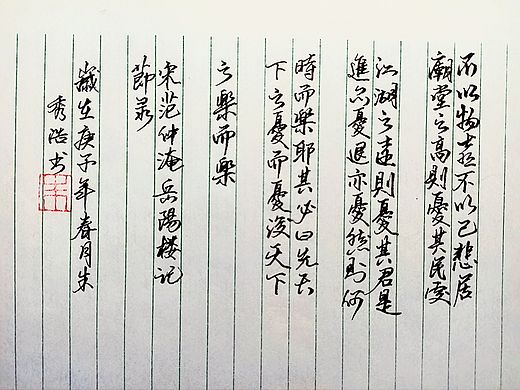 不以物喜不以己悲居
廟堂之高則憂其民處
江湖之遠則憂其君是
進亦憂退亦憂然则何
時而樂耶其必曰先天
下之憂而憂後天下
之樂而樂
宋范仲淹岳陽楼记
節录
歲在庚子年春月末
秀浩书